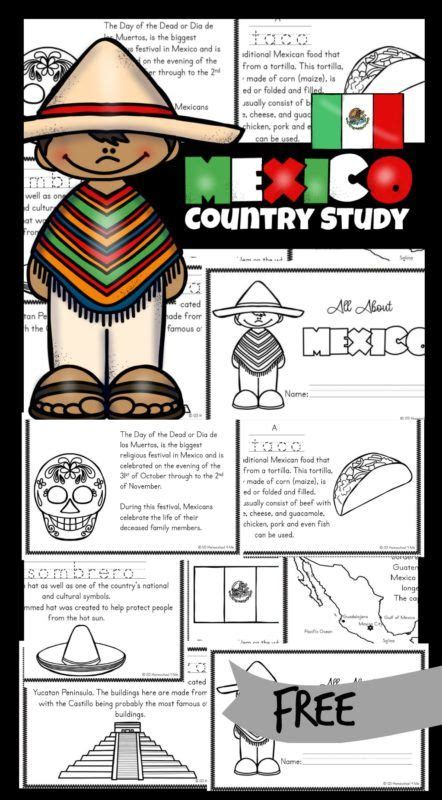 The Day of the Dead or Dia de
los Muertos, is the biggest
us festival in Mexico and is
d on the evening of the
ober through to the 2nd
Mexicans
A
taco
ditional Mexican food that
from a tortilla. This tortilla,
made of corn (maize), is
ed or folded and filled.
usually consist of be
e, cheese, and guaca
chicken, pork and e
can be used.
MEXICO
COUNTRY STUDY
mbr
well as one
and cultur
hat was
em on the wi
cated
made from
famous of
All About
MEXICO
Name:
The Day of the Dead or Dia de
los Muertos, is the biggest
religious festival in Mexico and is
celebrated on the evening of the
31st of October through to the 2nd
of November.
During this festival, Mexicans
celebrate the life of their
deceased family members.
A
taco
ditional Mexican food that
from a tortilla. This tortilla,
made of corn (maize), is
ed or folded and filled.
usually consist of beef with
e, cheese, and guacamole,
chicken, pork and even fish
can be used.
sombrero
hat as well as one of the country's national
and cultural symbols.
mmed hat was created to help protect people
from the hot sun.
borders
Guaten
Mexico
longe
The ca
Guadalajara
Mexico City
Gulf of Mexico
Pacific Ocean
Yucatan Peninsula. The buildings here are made from
with the Castillo being probably the most famous of
buildings.
All
FREE
Name: